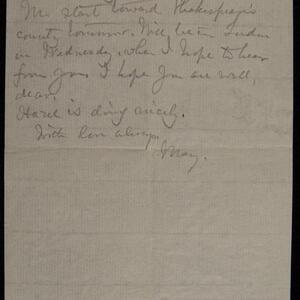 We start toward Shakespeare's
county tomorrow. Will be in London
on Wednesday, when I hope to hear
from you. I hope you are well,
dear.
Hazel is doing nicely.
With love always,
May.